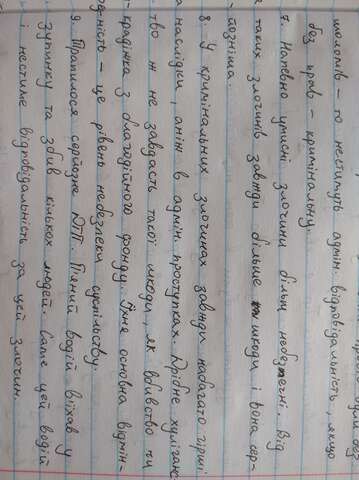 шоломів – то нестимуть адмін. відповідальність, якщо
без прав – кримінальну.
7. Напевно умисні злочини більш небезпечні. Від
таких злочинів завжди більше шкоди і вона сер-
йозніша.
8. У кримінальних злочинах завжди набагато гірші
наслідки, аніж в адмін. проступках. Дрібне хуліганс-
тво ж не завдасть такої шкоди, як вбивство чи
крадіжка з благодійного фонду. Їхня основна відмін-
ність – це рівень небезпеки суспільству.
9. Трапилося серйозне ДТП. П'яний водій в'їхав у
зупинку та збив кількох людей. Саме цей водій
і нестиме відповідальність за цей злочин.